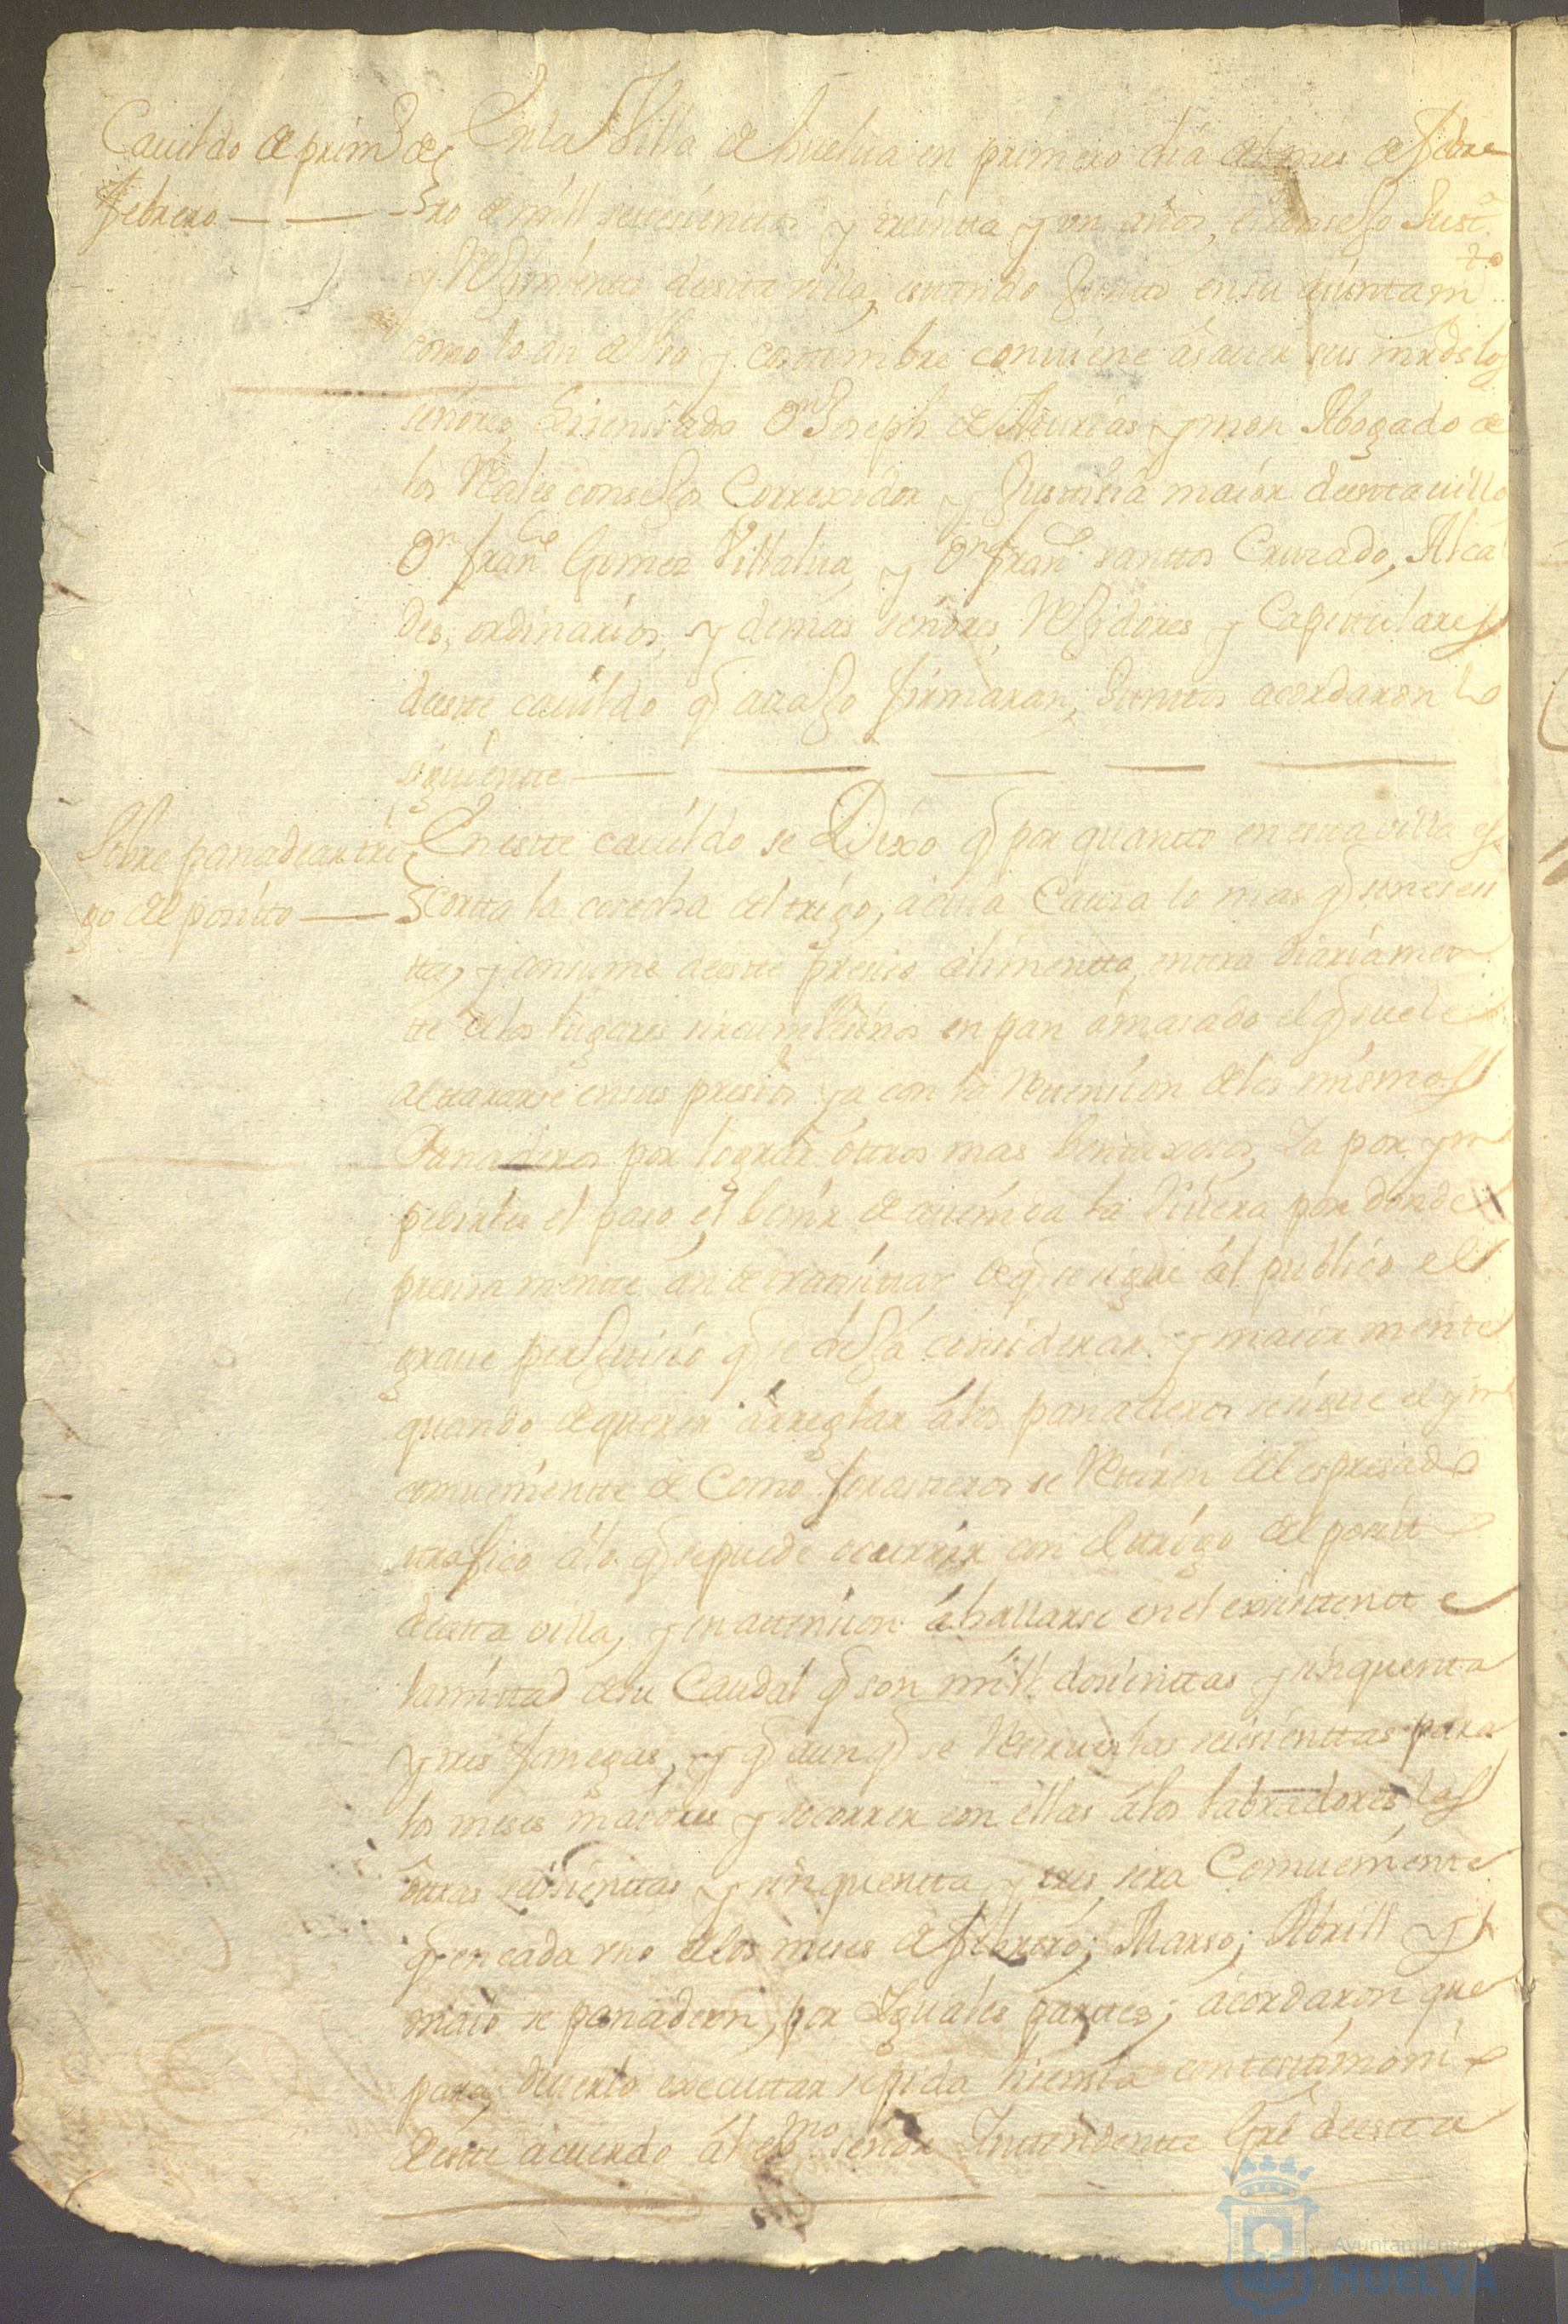 Cauildo de prim.º de
febrero
En la Villa de huelua en primero dia del mes de febre
ro de mill settesienttos y treintta y un años, el consejo Just.ª
y Rejimientto desta villa, estando junto en su aiuntam.to
como lo an de Vso y costumbre conuiene a sauer sus mrds los
señores Lisensiado Dn Joseph de Asturias y mon Abogado de
los Reales consejos Correxidor y Justisia maior destta uilla
Dn fran.co Gomez Villalua, y Dn fran.co santtos Cruzado, Alcal
des, ordinarios, y demas señores, Rejidores y Capittulares
destte cauildo q auajo firmaran, Junttos acordaron lo
siguientte
Sobre panadear tri
go del positto
En estte cauildo se Dixo q por quantto en estta villa es
cortta la cosecha del trigo, a cuia Causa lo mas q se nesesi
tta, y consume destte presiso alimentto, enttra diariamen
te de los lugares sircumbesinos en pan amasado el q suele
altterarse en sus presios ya con la Rettension de los mismos
Panaderos por lograr ottros mas benttaxosos, Ya por ym
pedirles el paso el benir de auenida la Riuera por donde
presisamentte an de transittar de q se sigue al publico el
graue perjuisio q se deja considerar y maiormente
quando de querer arreglar a los panaderos se sigue el yn
comueniente de Como forastteros se Rettiren del espresado
trafico a lo q se puede ocurrir con el trigo del positto
destta villa, y en attension a hallarse en el existtentte
la mittad de su Caudal q son mill dosienttas y sinquentta
y tres fanegas, y q aunq se Reseruen las seisienttas para
los meses maiores y socorrer con ellas a los labradores las
ottras seisienttas y sinquentta y tres, sera Comueniente
q en cada vno de los meses de febrero; Marso; Abrill y
maio se panadeen, por Yguales parttes; acordaron que
para poderlo executtar se pida lisensia con testtimoni
destte acuerdo al señor Inttendentte Gral destta
Ayuntamiento de
HUELVA